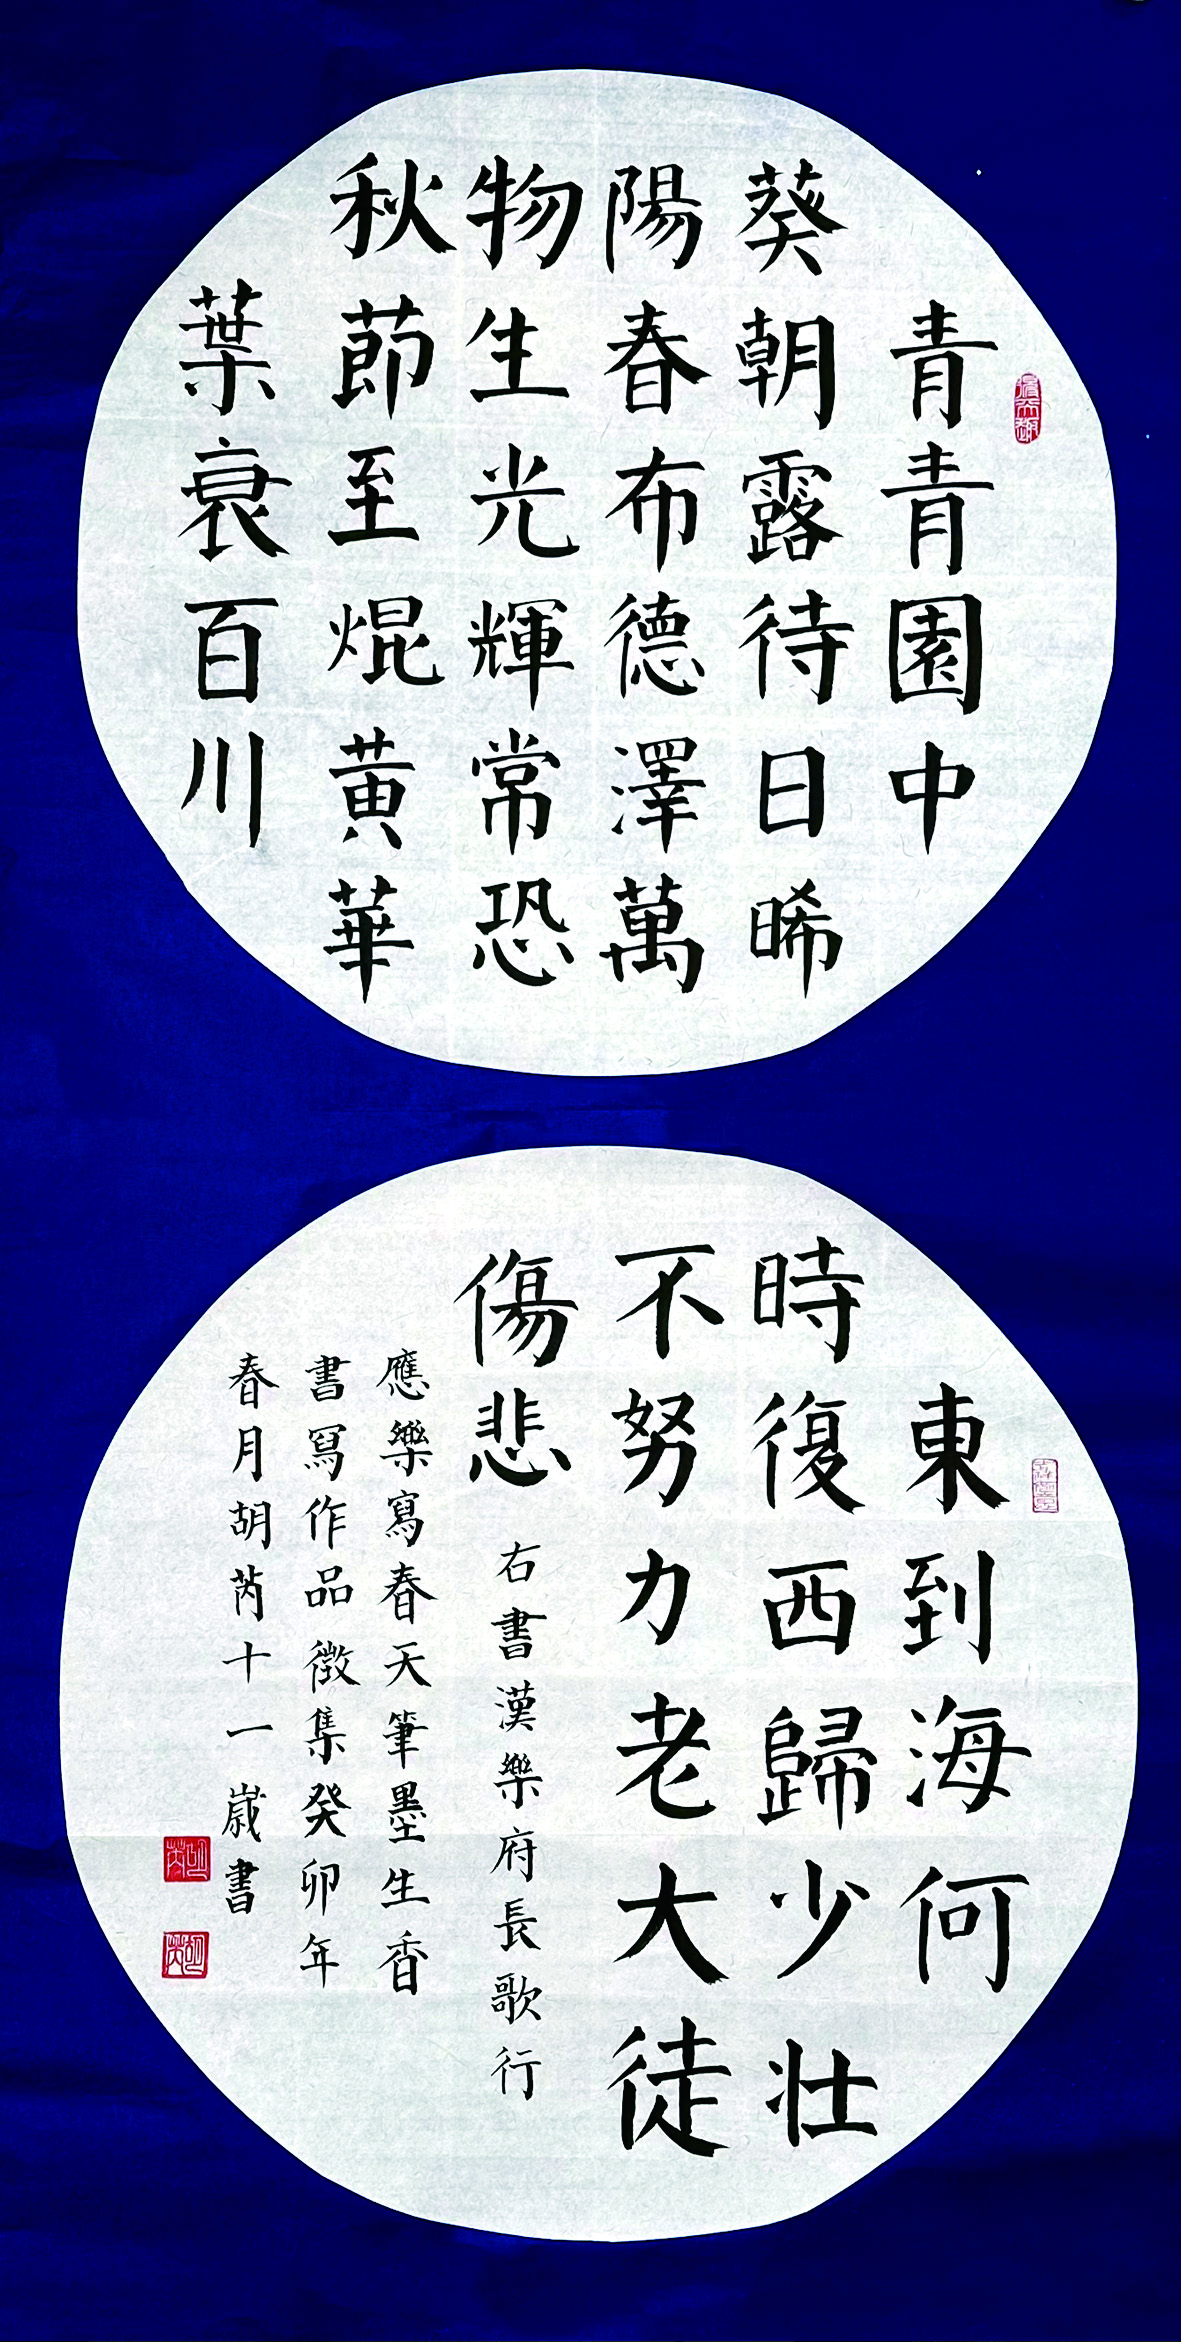 青青園中
葵朝露待日晞
陽春布德澤萬
物生光輝常恐
秋節至焜黃華
葉衰百川
東到海何
時復西歸少壯
不努力老大徒
傷悲
右書漢樂府長歌行
應樂寫春天筆墨生香
書寫作品徵集癸卯年
春月胡芮十一歲書